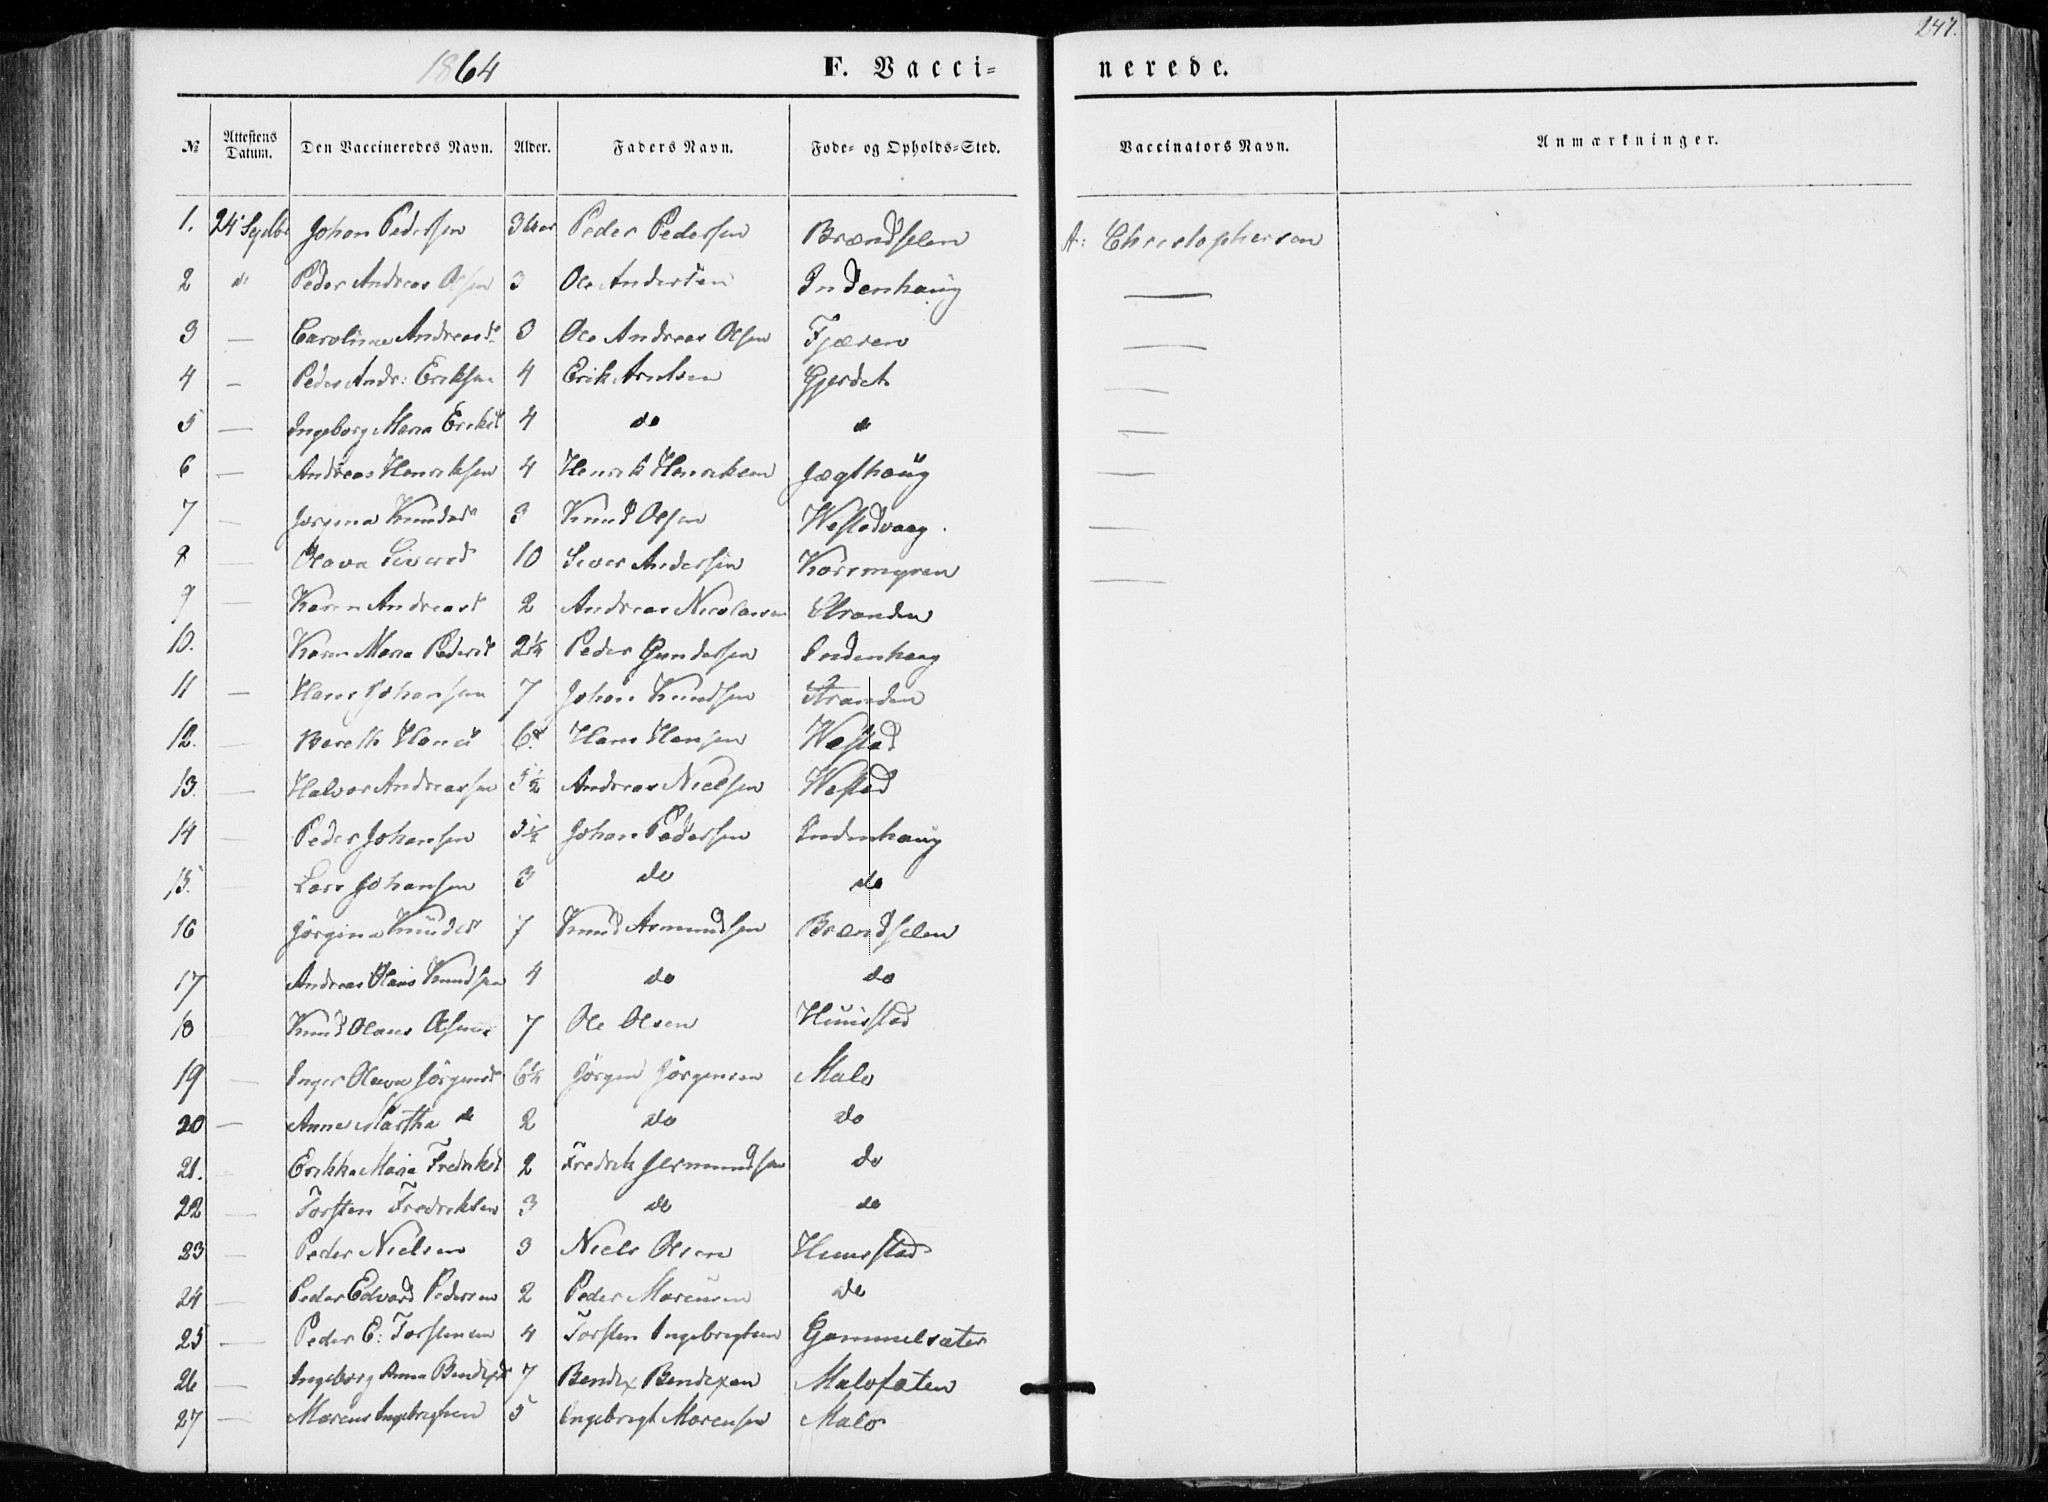 247.
1864 F. Vacci= nerede.
№ Attestens Datum. Den Vaccineredes Navn. Alder. Faders Navn. Føde= og Opholds=Sted. Vaccinators Navn. Anmærkninger.
1. 24 Johan Pedersen 3 Peder Pedersen Brændselen A: Christophersen
2 do Peder Andreas Olsen 3 Ole Andersen Indenhaug —
3 — Caroline Andreasd 3 Ole Andreas Olsen Fjæren —
4 — Peder Andr: Eriksen 4 Erik Arntsen Gjerdet —
5 — Ingeborg Maria Eriksd 4 do do —
6 — Andreas Henriksen 4 Henrik Henriksen Jægthaug —
7 — Knudsd 3 Knud Olsen Westadvaag. —
8 Olava Siversd 10 Siver Andersen Korsmyren —
9 — Karen Andreasd 2 Andreas Nicolaisen Stranden
10. — Karen Maria Pedersd 2¼ Peder Gundersen Indenhaug
11 — Hans Johansen 7 Johan Knudsen Stranden
12. — Bereth Hansd 6 Hans Hansen Westad
13. — Halvor Andreassen 5½ Andreas Nielsen Westad
14 — Peder Johansen 5½ Johan Pedersen Indenhaug
15. — Lars Johansen 3 do do
16 — Jørgine Knudsd 7 Knud Asmundsen Brændselen
17 Andreas Olaus Knudsen 4 do do
18 — Knud Olaus Olsen 7 Ole Olsen Hunstad
19 — Inger Olava Jørgensd 6¼ Jørgen Jørgensen Malo
20 — Anne Martha do 2 do do
21. — Erikka Maria Fredriksd 2 Fredrik Germundsen do
22 — Torsten Fredriksen 3 do do
23 — Peder Nielsen 3 Niels Olsen Hunstad
24 — Peder Edvard Pedersen 2 Peder Marcusen do
25 — Peder E: Torstensen 4 Torsten Ingebrigtsen Gammelsæter
26 — Ingeborg Anna Bendixd 7 Bendix Bendixen Malofeten
27 — Marcus Ingebrigtsen 5 Ingebrigt Marcusen Malo